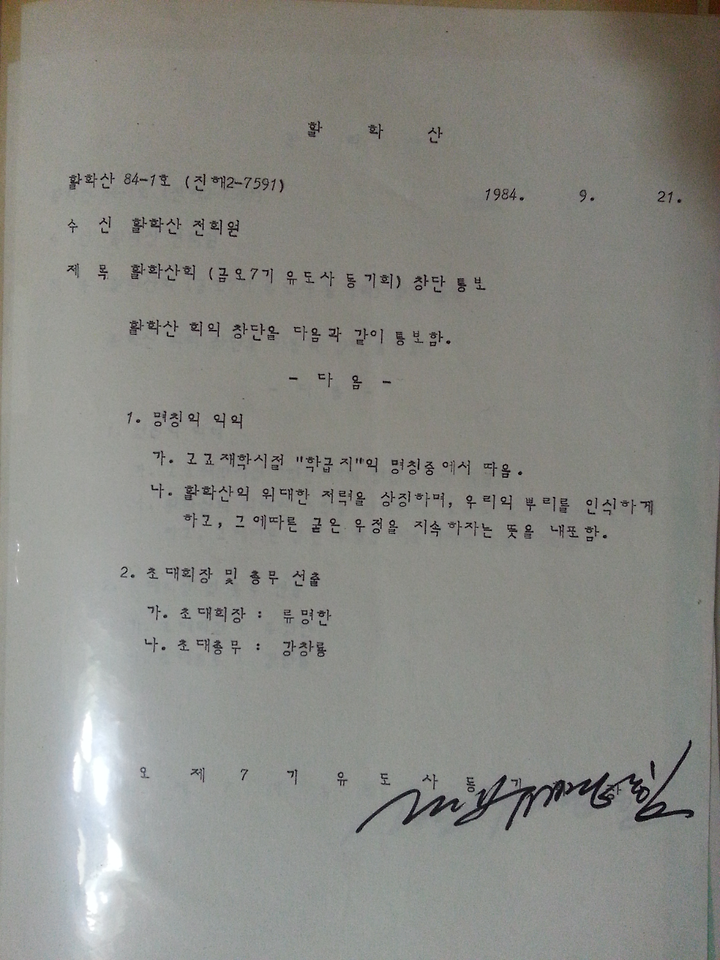 활 화 산
활화산 84-1호 (진해2-7591)
1984. 9. 21.
수 신 활화산 전회원
제 목 활화산회 (금오7기 유도사 동기회) 창단 통보
활화산 회의 창단을 다음과 같이 통보함.
- 다 음 -
1. 명칭의 의의
가. 고교재학시절 "학급지"의 명칭중에서 따옴.
나. 활화산의 위대한 저력을 상징하며, 우리의 뿌리를 인식하게
하고, 그에따른 굳은 우정을 지속하자는 뜻을 내포함.
2. 초대회장 및 총무 선출
가. 초대회장 : 류명한
나. 초대총무 : 강창룡
오 제 7 기 유 도 사 동 기